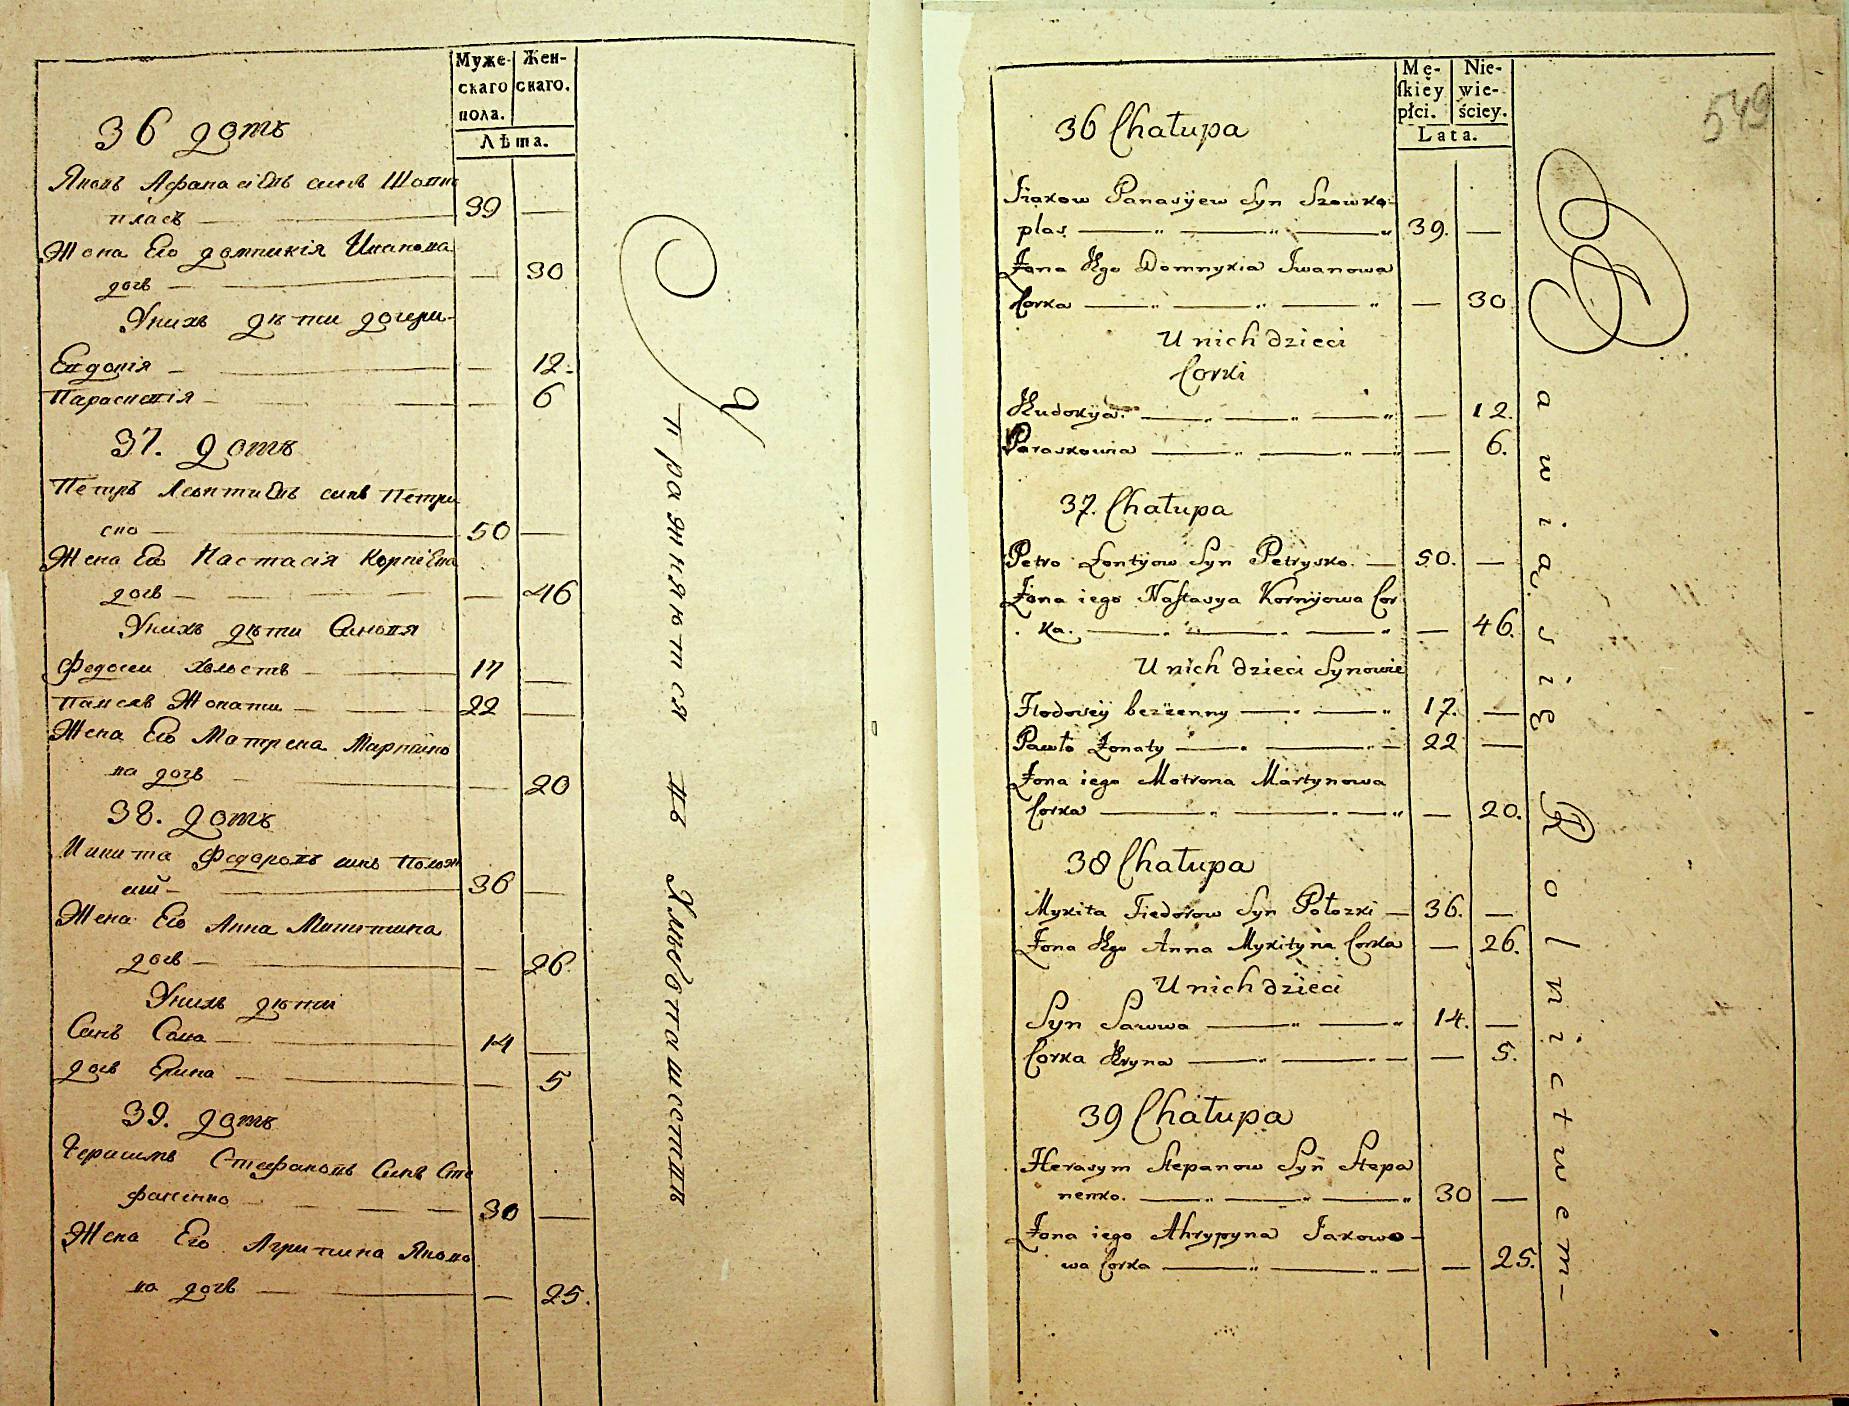 Муже-
скаго
пола.
Жен-
скаго.
Лѣта.
36 домъ
Яковъ Афанасіевъ синъ Шовко
пласъ — 39 —
Жена Его домникія Иванова
дочь — — 30
Унихъ дѣти дочери-
Евдокія — — 12.
Параскевія — — 6
37. домъ
Петръ Леонтіевъ синъ Петри
ско — 50 —
Жена Его Настасія Корнѣева
дочь — — 46
Унихъ дѣти Синовя
Федосей холостъ — 17 —
Павелъ Жонати — 22 —
Жена Его Матрена Мартино
ва дочь — — 20
38. домъ
Микита Федоровъ синъ Полож
кій — 36 —
Жена Его Анна Микитина
дочь — — 26.
Унихъ дѣти
Синъ Сава — 14 —
дочь Ерина — — 5
39. домъ
Герасимъ Стефановъ Синъ Сте
фаненко — 30 —
Жена Его Агрипина Яково
ва дочь — — 25.
Упражняются въ Хлѣбопашествѣ
Mę-
ſkiey
płci.
Nie-
wie-
ściey.
Lata.
549
36 Chałupa
Jiakow Panasÿew Syn Szowko-
plas — 39. —
Żona Jego Domnykia Jwanowa
Corka — — 30
U nich dzieci
Corki
Eudokÿa. — — 12.
Paraskowia — — 6.
37. Chałupa
Petro Lontÿow Syn Petrysko. — 50. —
Żona iego Naſtasya Kornÿowa Cor
ka. — — 46.
U nich dzieci Synowie
Fiedosiÿ bezżenny — 17. —
Pawło Żonaty — 22 —
Żona iego Motrona Martynowa
Corka — — 20.
38 Chałupa
Mykita Fiedorow Syn Połozki — 36. —
Żona Jego Anna Mykityna Corka — 26.
U nich dzieci
Syn Sawwa — 14. —
Corka Hryna — — 5.
39 Chałupa
Herasym Stepanow Syn Stepa
nenko. — 30 —
Żona iego Ahrypyna Jakowo-
wa Corka — — 25.
Bawią się Rolnictwem-